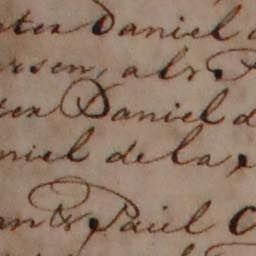 ter Daniel d
rsen, als P
ter Daniel d
niel dela
Paul C